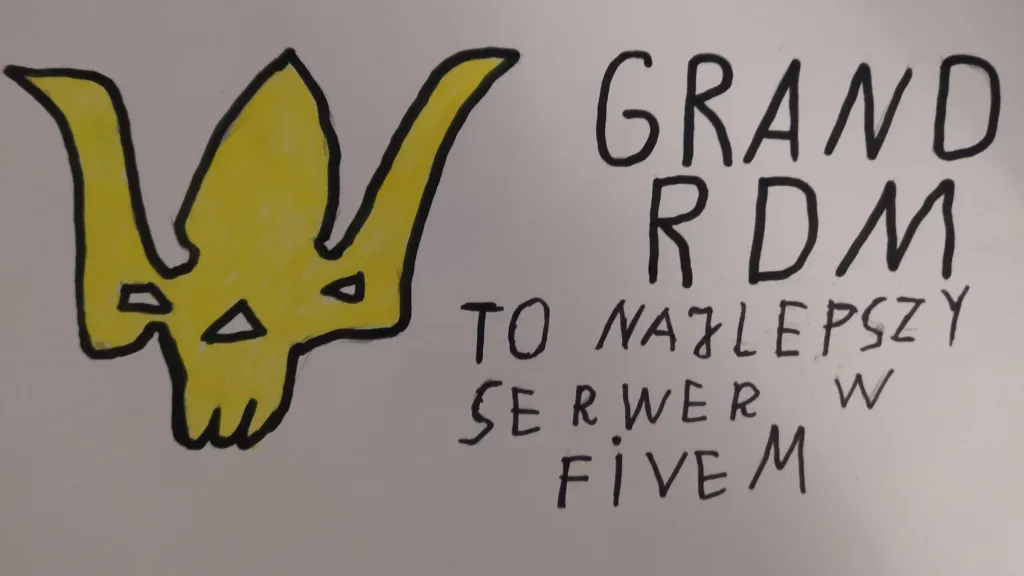 GRAND
RDM
TO NAJLEPSZY
SERWER W
FiVEM